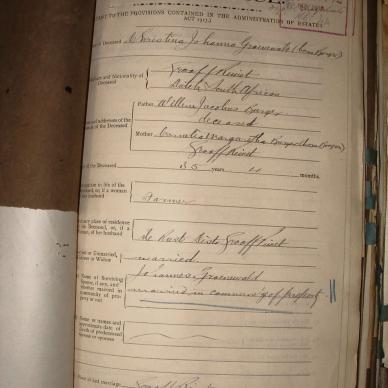 NT TO THE PROVISIONS CONTAINED IN THE ADMINISTRATION OF ESTATES
ACT 1913.)
Deceased Christina Johanna Groenewald (born Burger)
place and Nationality of
Deceased
Graaff Reinet
Dutch South African
addresses of the
of the Deceased
Father Willem Jacobus Burger
deceased
Mother Cornelia Margaretha Burger (born Burger)
Graaff Reinet
of the Deceased 35 years 4 months.
in life of the
Deceased, or, if a woman
her husband
Farmer
place of residence
Deceased, or, if a
woman, of her husband
Graaff Reinet
or Unmarried,
or Widow
married
Name of Surviving
Spouse, if any, and
whether married in
community of pro-
perty or not
Johannes Groenewald
married in community of property
Name or names and
approximate date of
death of predeceased
spouse or spouses
of last marriage Graaff Reinet